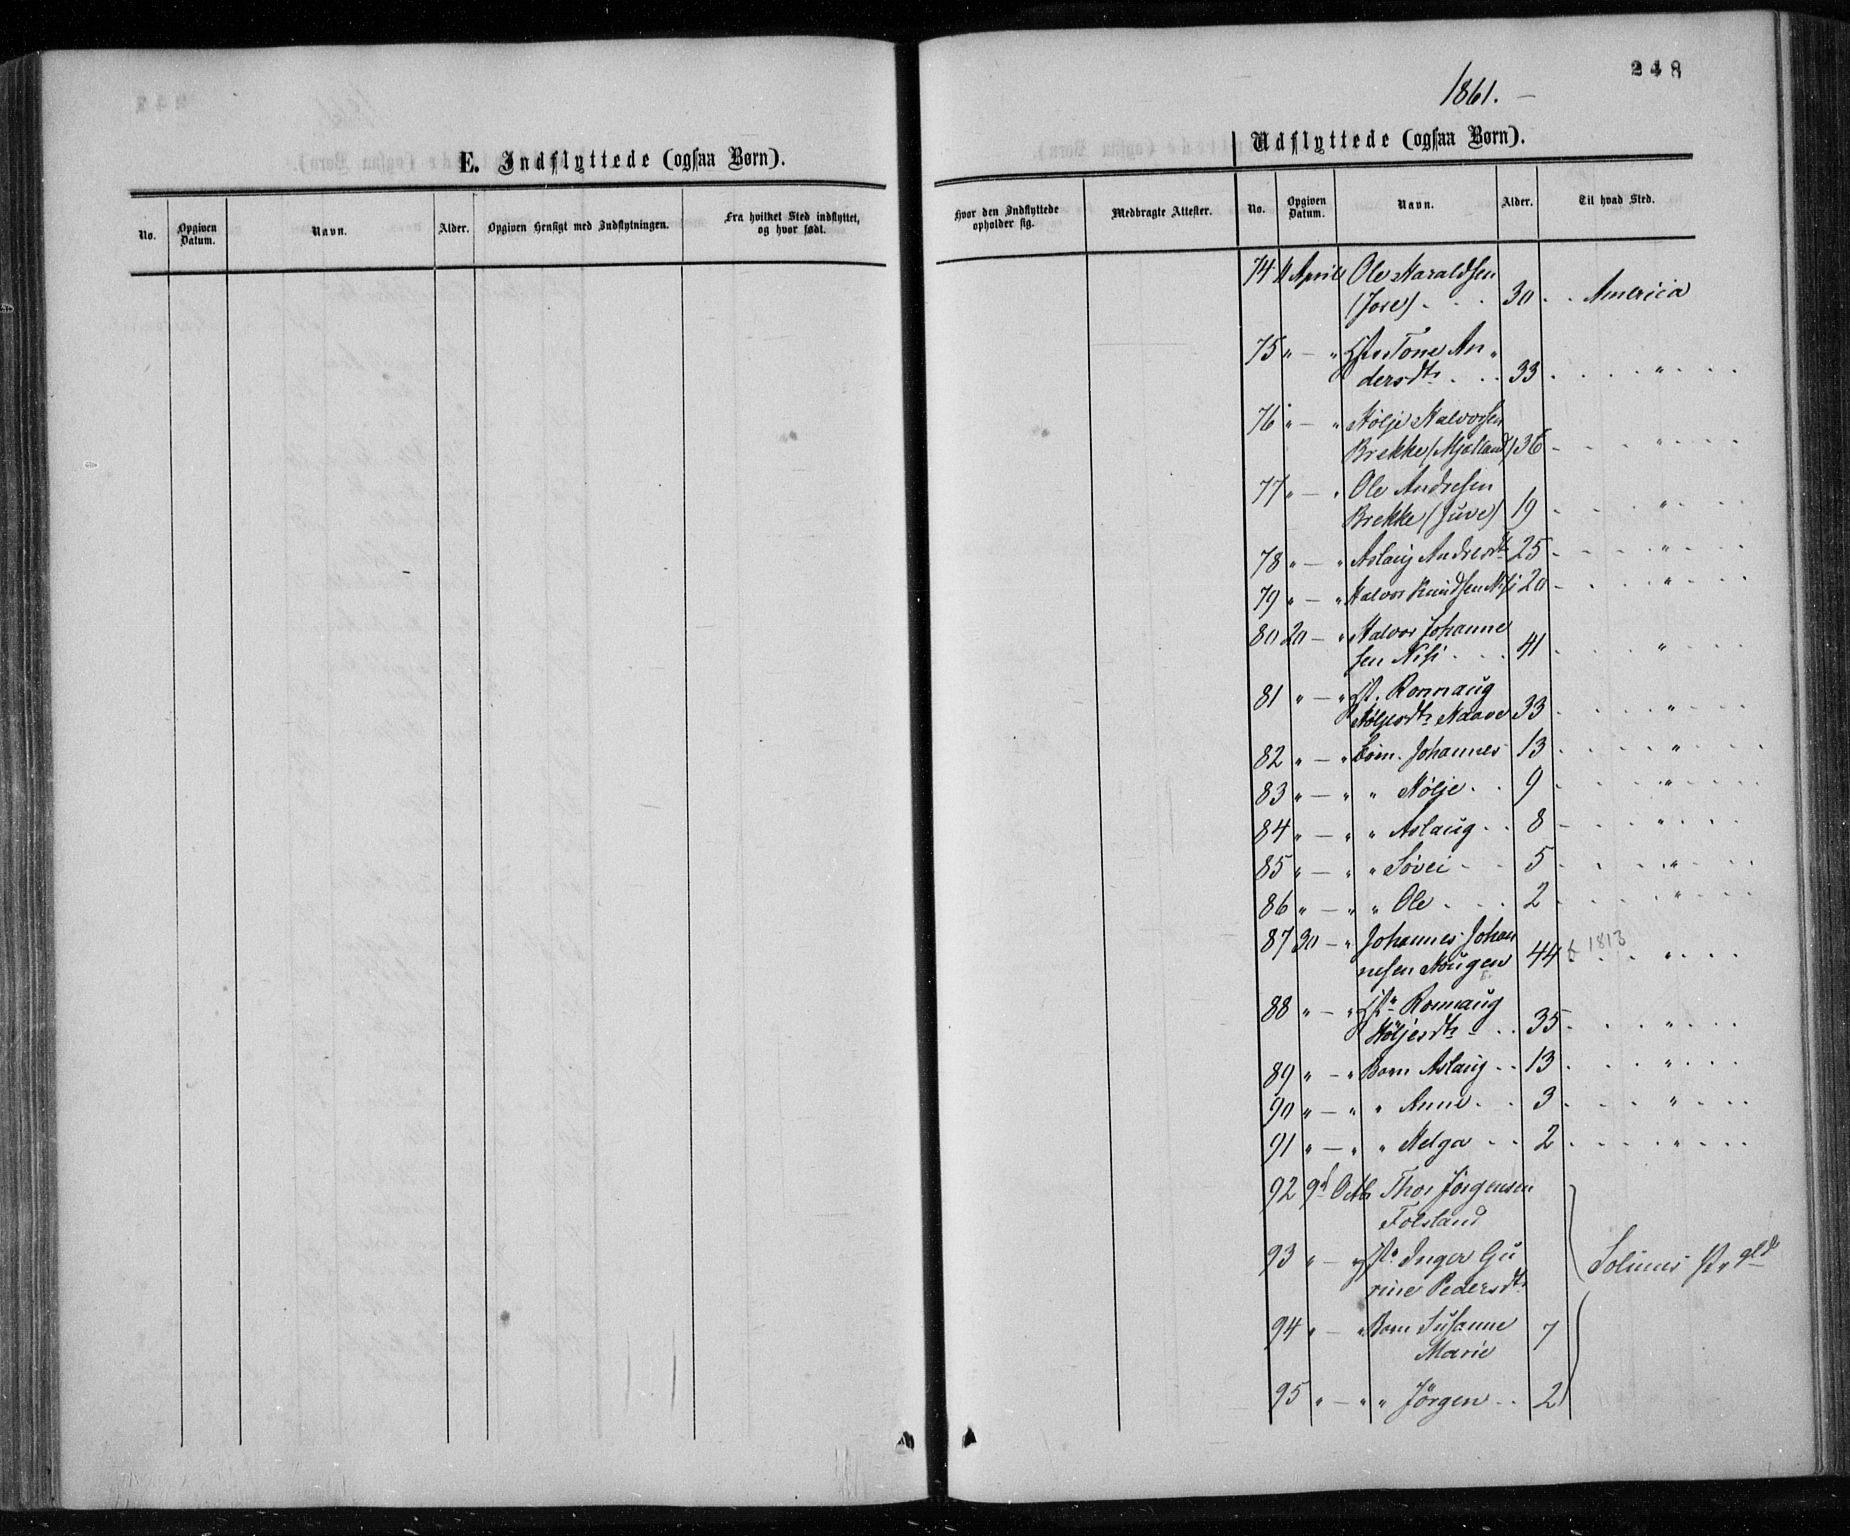 248
1861. –
E. Indflyttede (ogsaa Børn).
Udflyttede (ogsaa Børn).
No. Opgiven Datum. Navn. Alder. Opgiven Hensigt med Indflytningen. Fra hvilket Sted indflyttet, og hvor født.
Hvor den Indflyttede opholder sig. Medbragte Attester. No. Opgiven Datum. Navn. Alder. Til hvad Sted.
74 April Ole Haraldsen
(Jore) . . . 30 . . America
75 " – " Tone An
dersdtr . . . 33 . . . " . . .
76 " – " Høljе Halvorsen
Brekke (Mjelland) 36 - . . " . .
77 " – " Ole Andresen
Brekke (Juve) 19 . . . " . .
78 " – " Aslaug Andresdtr 25 - . . " . .
79 " – " Halvor Knudsen Nisi 20 - . . " . .
80 20 – " Halvor Johanne
sen Nisi . . . 41 . . . " . .
81 " – " Hst. Ronnaug
Høljesdtr Naave 33 . . . " . .
82 " – " Børn. Johannes 13 . . . " . .
83 " – " " Hølje . . 9 . . . " . .
84 " – " " Aslaug . . 8 - . . " . .
85 " – " " Søvei . . 5 . . . " . .
86 " – " " Ole . . . 2 . . . " . .
87 30 – " Johannes Johan
nesen Haugen 44 f. 1813 . " . .
88 " – " Hst. Ronnaug
Höljesdtr . . 35 . . . " . .
89 " – " Born Aslaug . . 13 . . . " . .
90 " – " " Anne . . 3 . . . " . .
91 " – " " Helga . . 2 . . . " . .
92 9d Octbr Thor Jörgensen
Folsland
93 " – " Hst. Inger Gu
rine Pedersdtr
Solums Pr.gld
94 " – " Born Susanne
Marie 7
95 " – " " Jörgen . . 2